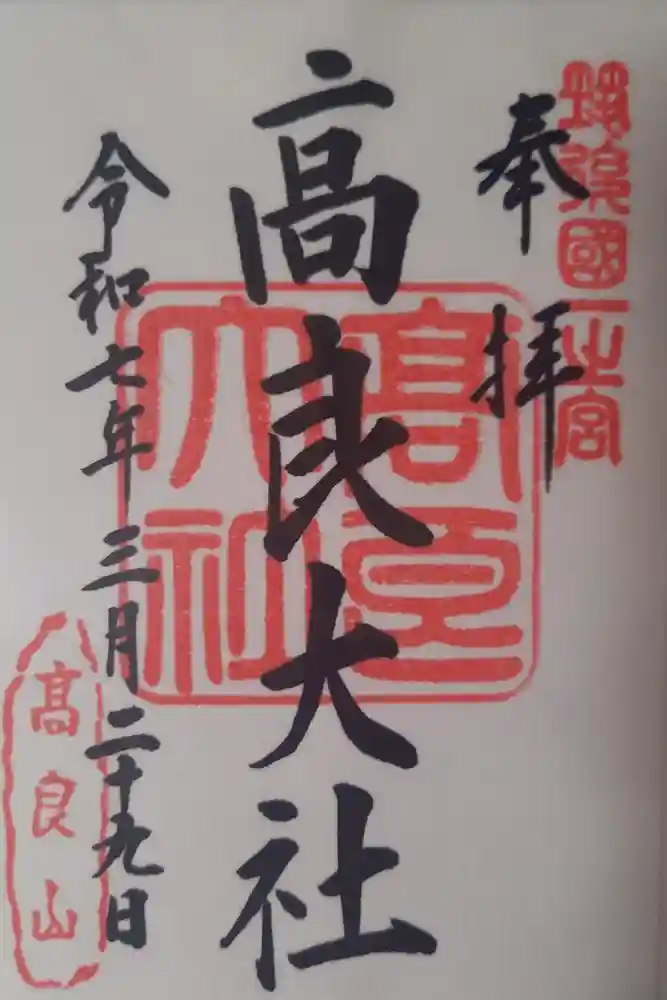 筑後國一之宮
奉拝
高良大社
高良大社
令和七年三月二十九日
高良山